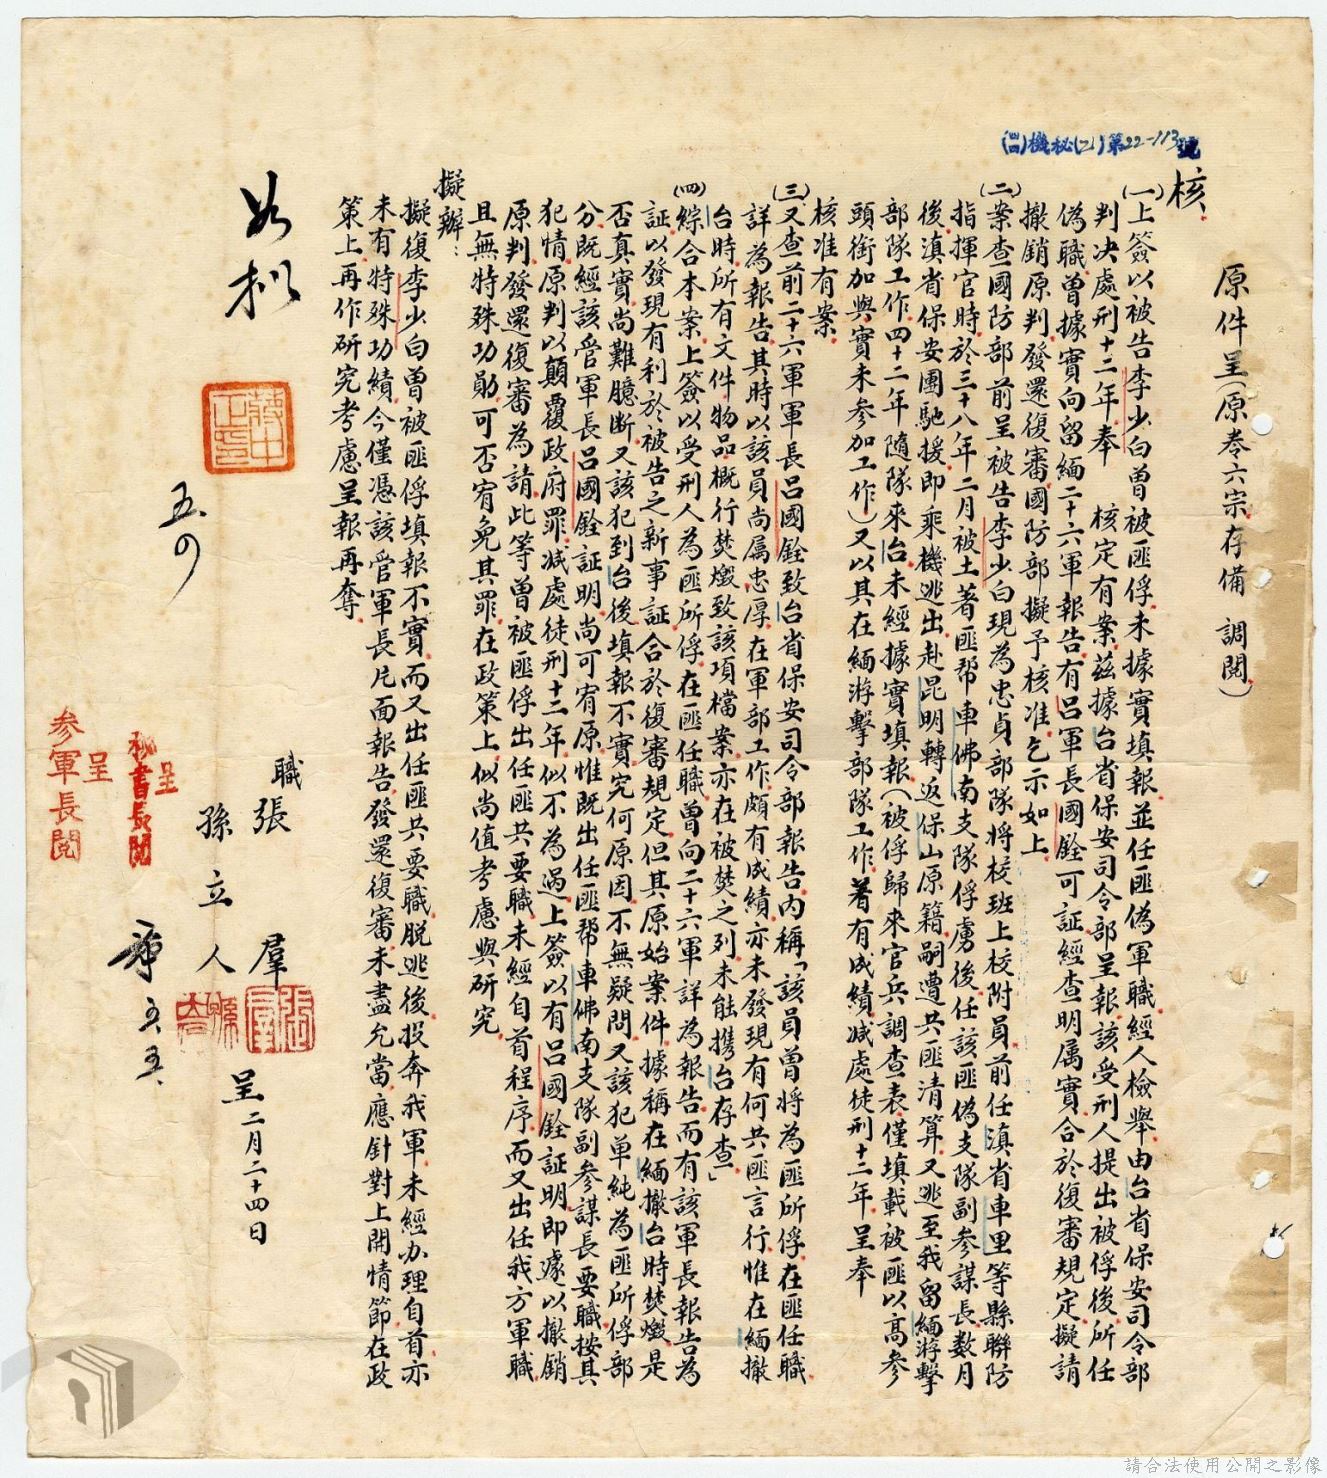 機秘(乙)第22-113號
原件呈（原卷六宗存備調閱）
核
(一)上簽以被告李少白曾被匪俘未據實填報並任匪偽軍職經人檢舉由台省保安司令部
判决處刑十二年奉　核定有案茲據台省保安司令部呈報該受刑人提出被俘後所任
偽職曾據實向留緬二十六軍報告有呂軍長國銓可証經查明属實合於復審規定擬請
撤銷原判發還復審國防部擬予核准乞示如上
(二)案查國防部前呈被告李少白現為忠貞部隊將校班上校附員前任滇省車里等縣聯防
指揮官時於三十八年二月被土著匪帮車佛南支隊俘虜後任該匪偽支隊副參謀長数月
後滇省保安團馳援即乘機逃出赴昆明轉返保山原籍嗣遭共匪清算又逃至我留緬游擊
部隊工作四十二年隨隊來台未經據實填報（被俘歸來官兵調查表僅填載被匪以高参
頭銜加與實未參加工作）又以其在緬游擊部隊工作著有成績減處徒刑十二年呈奉
核准有案
(三)又查前二十六軍軍長呂國銓致台省保安司令部報告內稱「該員曾將為匪所俘在匪任職
詳為報告其時以該員尚属忠厚在軍部工作頗有成績亦未發現有何共匪言行惟在緬撤
台時所有文件物品概行焚燬致該項檔案亦在被焚之列未能携台存查」
(四)綜合本案上簽以受刑人為匪所俘在匪任職曾向二十六軍詳為報告而有該軍長報告為
証以發現有利於被告之新事証合於復審規定但其原始案件據稱在緬撤台時焚燬是
否真實尚難臆断又該犯到台後填報不實究何原因不無疑問又該犯单純為匪所俘部
分既經該管軍長呂國銓証明尚可宥原惟既出任匪帮車佛南支隊副參謀長要職按其
犯情原判以顛覆政府罪减處徒刑十二年似不為過上簽以有呂國銓証明即遽以撤銷
原判發還復審為請此等曾被匪俘出任匪共要職未經自首程序而又出任我方軍職
且無特殊功勛可否宥免其罪在政策上似尚值考慮與研究
擬辦：
擬復李少白曾被匪俘填報不實而又出任匪共要職脱逃後投奔我軍未經办理自首亦
未有特殊功績今僅憑該管軍長片面報告發還復審未盡允當應針對上開情節在政
策上再作研究考慮呈報再奪
如擬
蔣中正印
五
職張羣
孫立人
呈二月二十四日
五五
呈
秘書長閱
呈
参軍長閱
請合法使用公開之影像